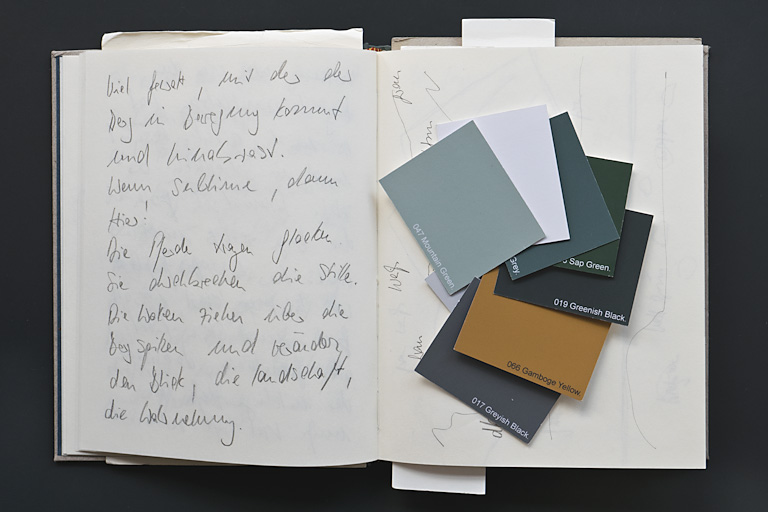 Viel Gewalt, mit der der
Berg in Bewegung kommt
und hinabrast.
Wenn Sublime, dann
Hier!
Die Pferde tragen Glocken.
Sie durchbrechen die Stille.
Die Wolken ziehen über die
Bergspitzen und verändern
den Blick, die Landschaft,
die Wahrnehmung.
047 Mountain Green.
Grey.
Sap Green.
019 Greenish Black.
066 Gamboge Yellow.
017 Greyish Black.